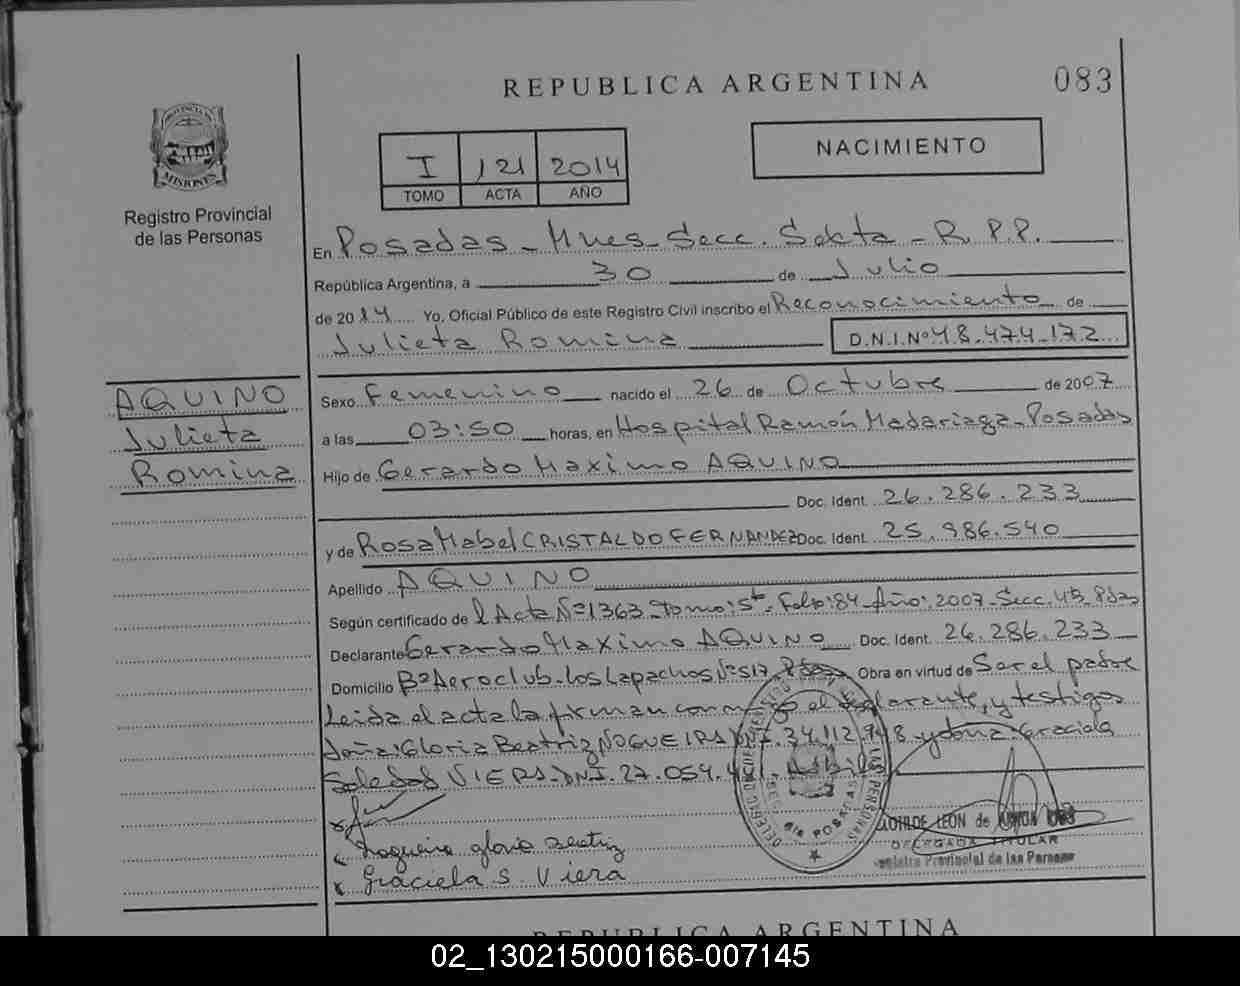 REPUBLICA ARGENTINA
083
PROVINCIA DE
MISIONES
Registro Provincial
de las Personas
I 121 2014
TOMO ACTA AÑO
NACIMIENTO
En Posadas - Mnes - Secc. Sexta - R.P.P.
República Argentina, a 30 de Julio
de 2014 Yo, Oficial Público de este Registro Civil inscribo el Reconocimiento de
Julieta Romina D.N.I.Nº 48.474.172
AQUINO
Julieta
Romina
Sexo Femenino nacido el 26 de Octubre de 2007
a las 03:50 horas, en Hospital Ramón Madariaga - Posadas
Hijo de Gerardo Maximo AQUINO
Doc. Ident. 26.286.233
y de Rosa Mabel CRISTALDO FERNANDEZ Doc. Ident. 25.986.540
Apellido AQUINO
Según certificado de l Acta Nº 1363 - Tomo: 5º - Folio: 84 - Año: 2007 - Secc. 4ta. Pdas
Declarante Gerardo Maximo AQUINO Doc. Ident. 26.286.233
Domicilio Bº Aeroclub - Los Lapachos Nº 517 - Pdas Obra en virtud de Ser el padre
Leida el acta la firman conmigo el declarante, y testigos
doña: Gloria Beatriz NOGUEIRA DNI. 34.112. y doña: Graciela
Soledad VIERA - DNI. 27.054.
Nogueira gloria Beatriz
Graciela S. Viera
LEON de
DELEGADA TITULAR
Registro Provincial de las Personas
REPUBLICA ARGENTINA
02_130215000166-007145